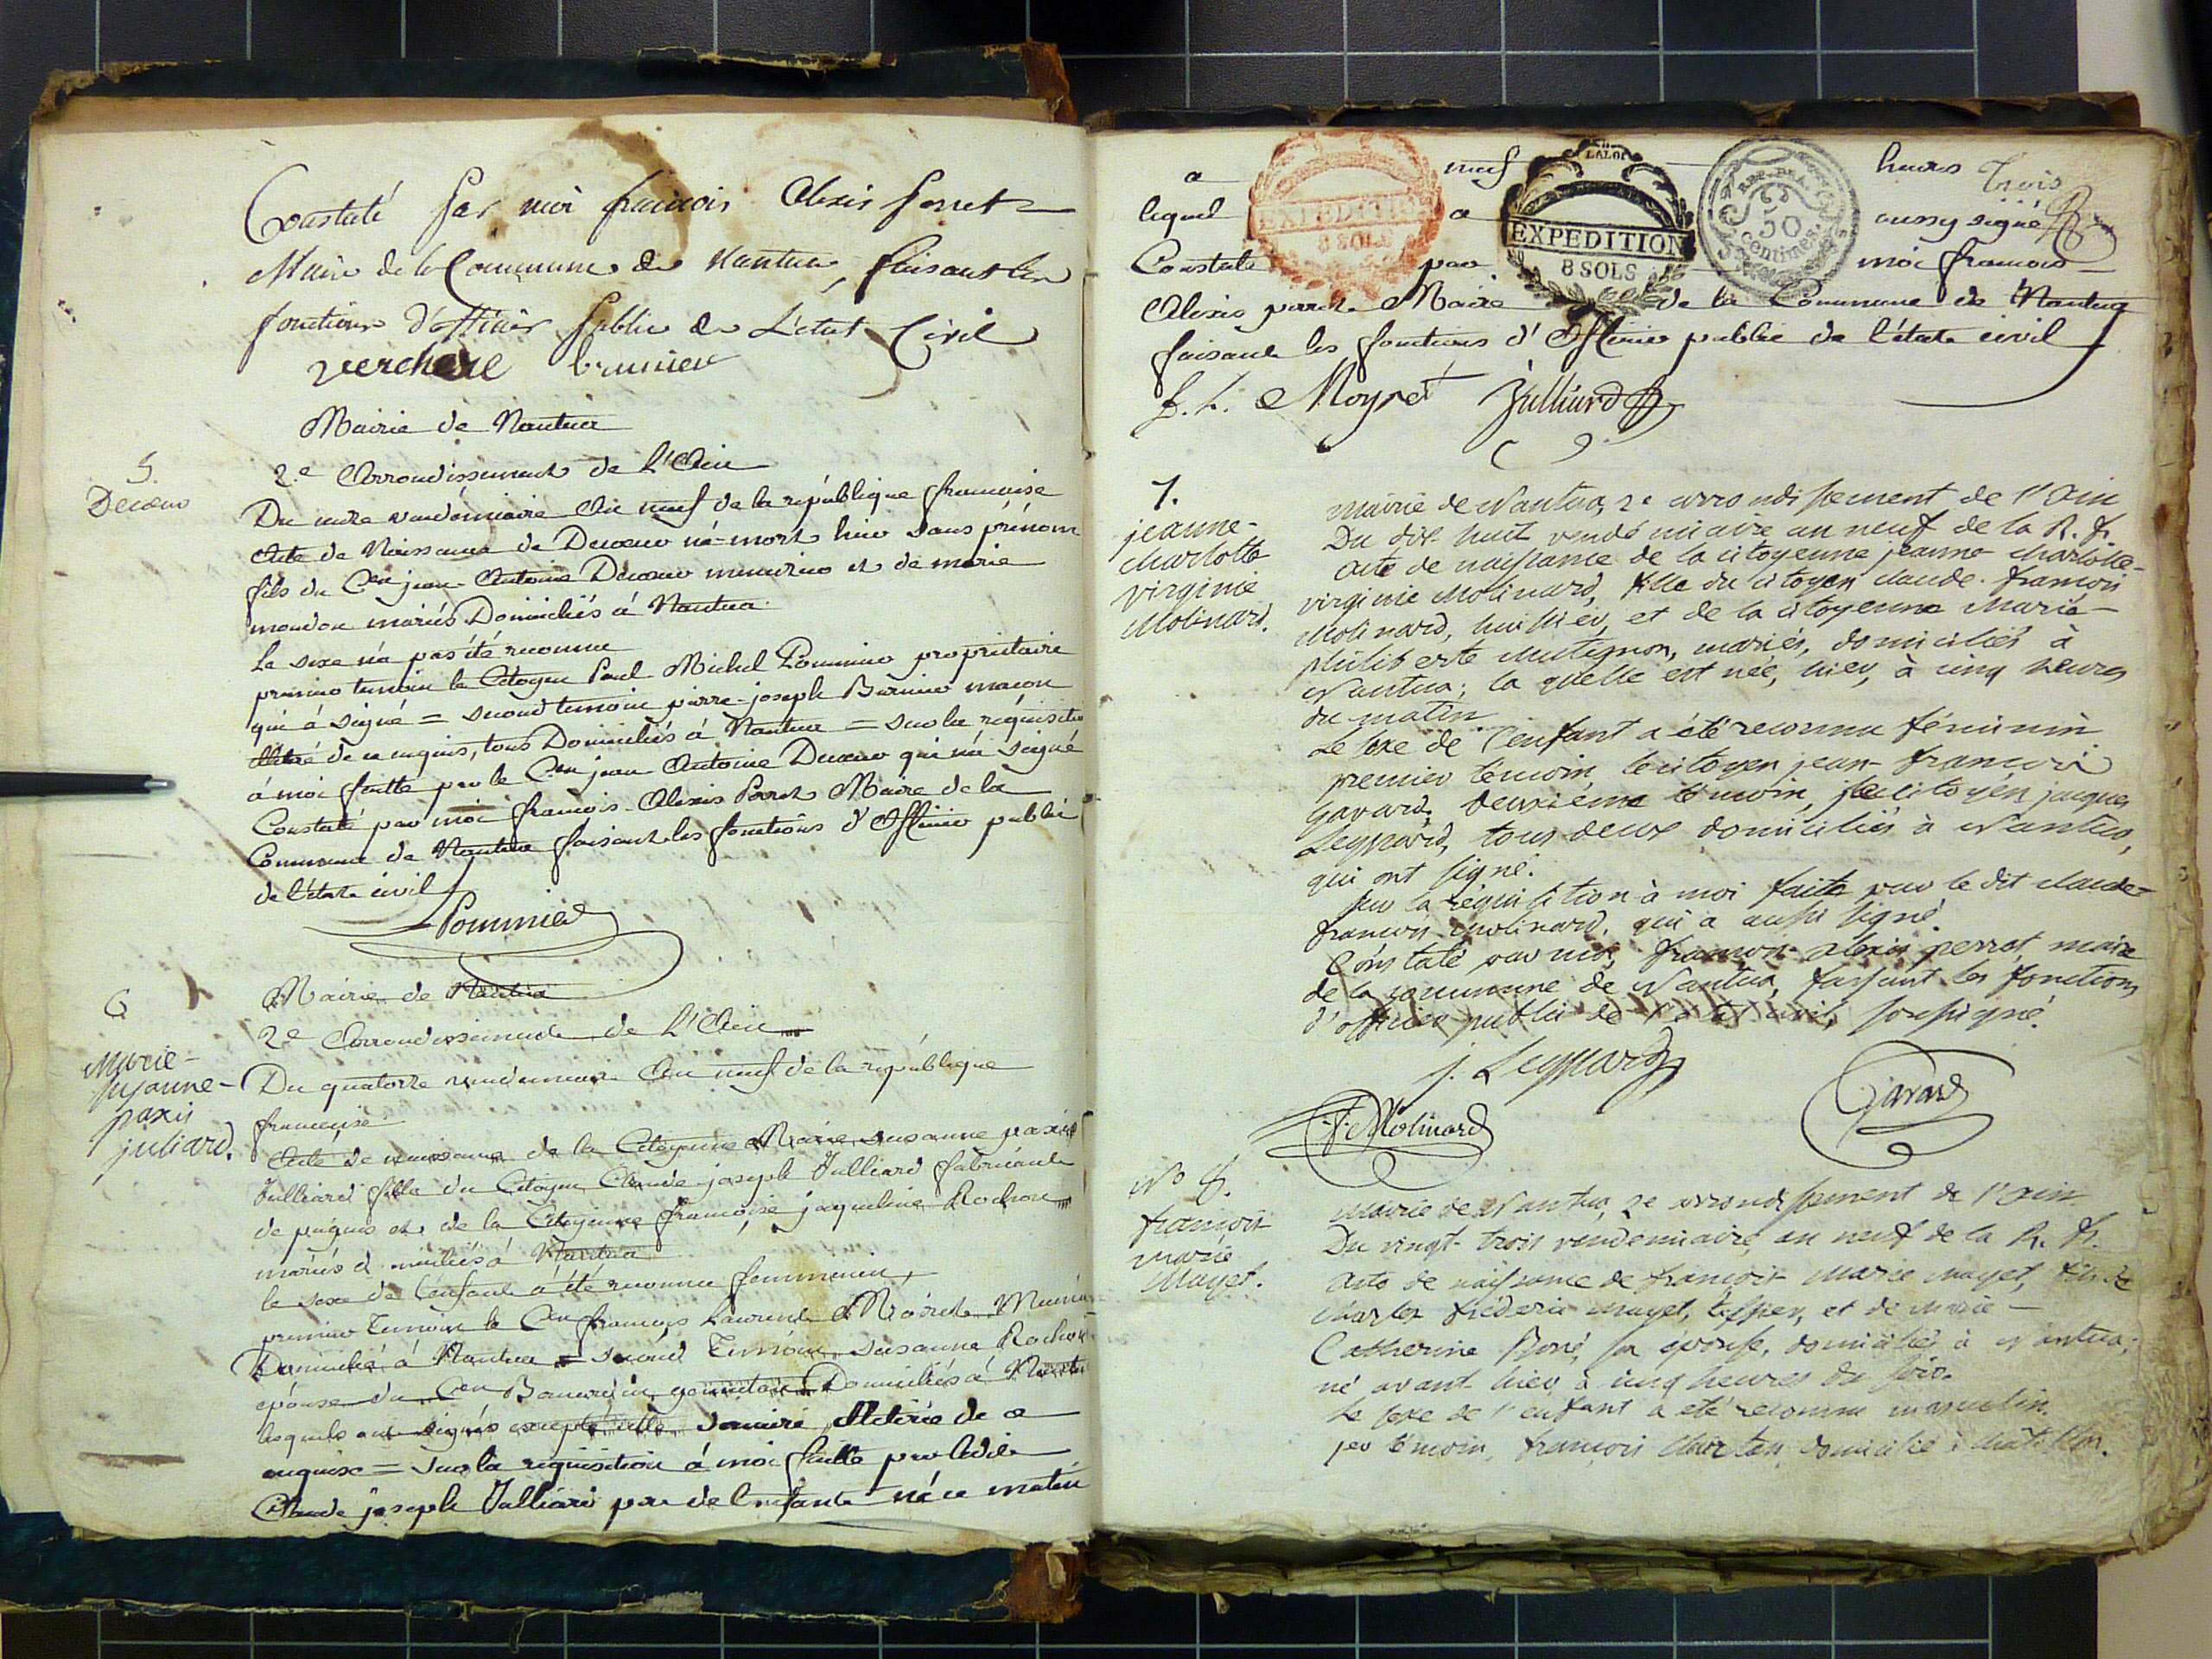 Constaté par moi françois Alexis perret
Maire de la Commune de Nantua, faisant les
fonctions d'officier public de L'etat Civil
verchere brunier
Mairie de Nantua
2.e Arrondissement de L'Ain
5.
Decoeur
Du onze vendémiaire An neuf de la république française
Acte de Naissance de Decoeur né-mort hier sans prénom
fils du Cen jean-Antoine Decoeur menuisier et de marie
mondon mariés Domiciliés à Nantua
Le sexe n'a pas été reconnu
premier temoin le Citoyen Paul Michel Pommier propriétaire
qui à signé = second temoin pierre-joseph Burnier maçon
illitéré de ce enquis, tous Domiciliés à Nantua = sur la réquisition
à moi faitte par le Cen jean Antoine Decoeur qui n'a signé
Constaté par moi françois-Alexis Perret Maire de la
Commune de Nantua faisant les fonctions d'Officier public
de l'état civil
Pommier
6
Marie-
susanne-
paxis
juliard.
Mairie de Nantua
2e Arrondissement de L'Ain
Du quatorze vendemiaire An neuf de la république
française
Acte de naissance de la Citoyenne Marie susanne paxis
Julliard fille du Citoyen Claude-joseph Julliard fabricant
de peignes et de la Citoyenne françoise jaqueline Rochon
mariés domiciliés à Nantua
le sexe de l'enfant a été reconnu femminin,
premier Temoin le Cen françois Laurent Moiret
Domicilié à Nantua = second Temoin susanne Rochon
épouse du Cen Domiciliés à Nantua
lesquels ont signés excepté cette derniere illitérée de ce
enquise = sur la requisition à moi faitte par ledit
Claude joseph Julliard pere de l'enfant né ce matin
a neuf heures Trois
lequel a aussy signé
Constaté par moi francois
Alexis perret Maire de la Commune de Nantua
faisant les fonctions d'Officier public de l'état civil
EXPEDITION
8 SOLS
LA LOI
EXPEDITION
8 SOLS
REP. FRA.
50
centimes.
f. L. Moyret Julliard
7.
jeanne-
charlotte
virginie
Molinard.
mairie de Nantua, 2e arrondissement de l'Ain
Du dix-huit vendémiaire an neuf de la R. f.
acte de naissance de la citoyenne jeanne-charlotte-
virginie Molinard, fille du citoyen claude-françois
Molinard, huissier, et de la citoyenne Marie-
philiberte mutignon, mariés, domiciliés à
Nantua; la quelle est née, hier, à cinq heures
du matin
Le sexe de l'enfant a été reconnu féminin
premier témoin le citoyen jean-françois
Gavard, deuxième témoin, le citoyen jacques
Leyssard, tous deux domiciliés à Nantua,
qui ont signé.
sur la réquisition à moi faite par le dit claude-
françois molinard, qui a aussi signé.
Constaté par moi, françois-alexis perret, maire
de la commune de Nantua, faisant les fonctions
d'officier public de l'état civil, soussigné.
J. Leyssard
C. f. Molinard Gavard
No 8.
françois
marie
Mayet.
mairie de Nantua, 2e arrondissement de l'Ain
Du vingt-trois vendémiaire, an neuf de la R. f.
acte de naissance de françois Marie mayet, fils de
charles fréderic mayet, et de marie-
Catherine Boné, son épouse, domiciliés à Nantua,
né avant-hier, à cinq heures du soir.
Le sexe de l'enfant a été reconnu masculin.
per témoin, françois domicilié à